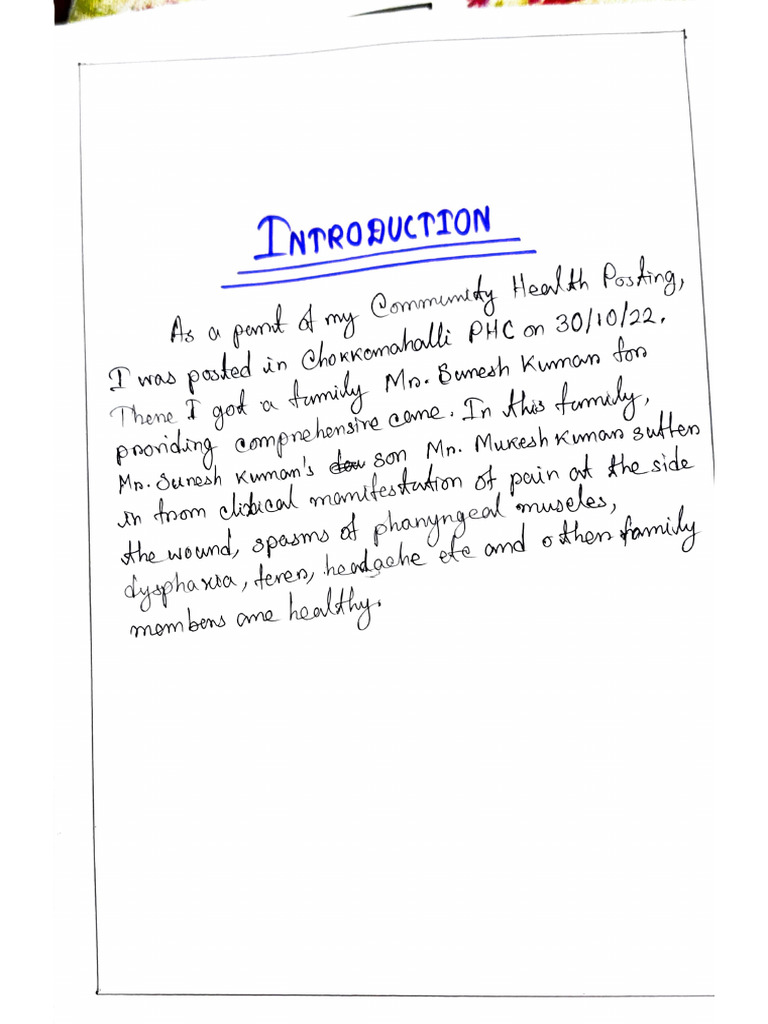 INTRODUCTION
As a part of my Community Health Posting,
I was posted in Chokkomahalli PHC on 30/10/22.
There I got a family Mr. Suresh Kumar for
providing comprehensive care. In this family,
Mr. Suresh Kumar's son Mr. Mukesh Kumar suffers
in from clinical manifestation of pain at the side
the wound, spasms of pharyngeal muscles,
dysphaxia, fever, headache etc and other family
members are healthy.